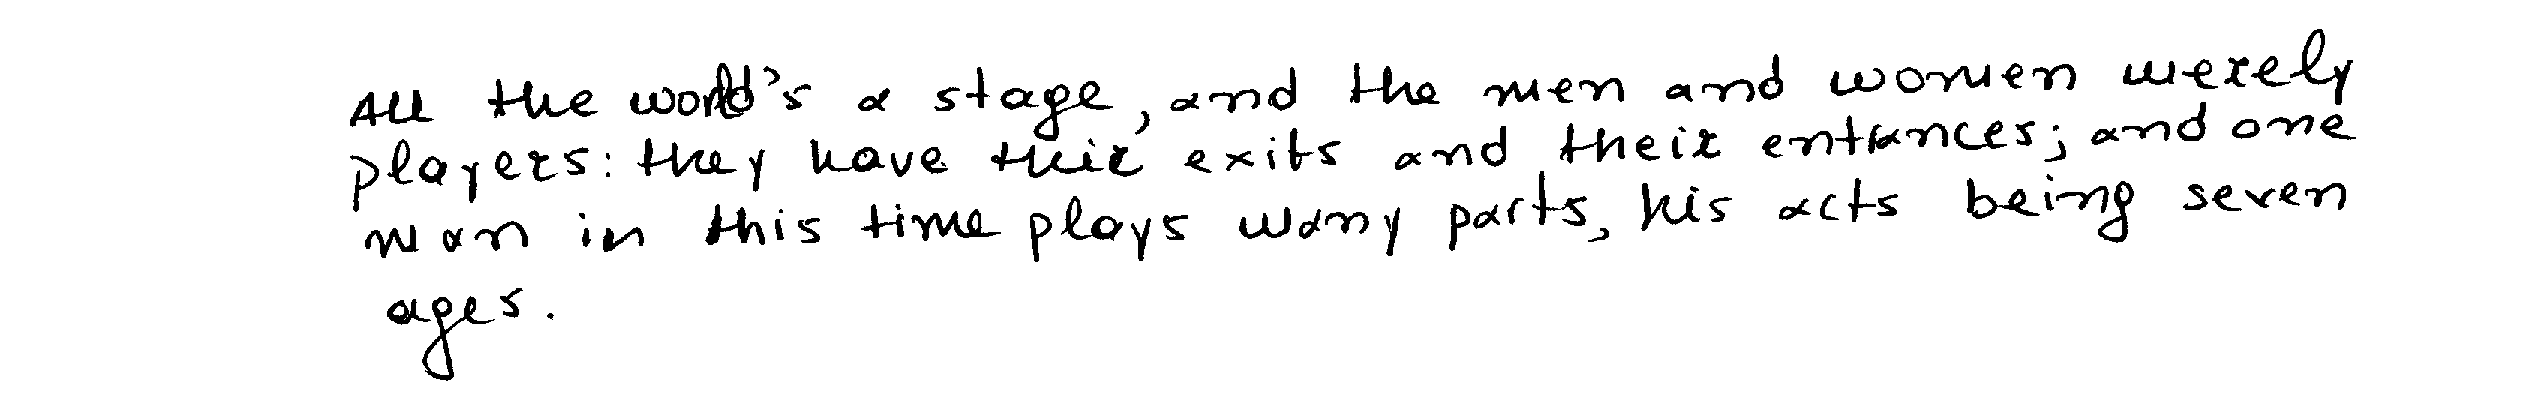 All the world's a stage, and the men and women merely
players: they have their exits and their entrances; and one
man in this time plays many parts, his acts being seven
ages.